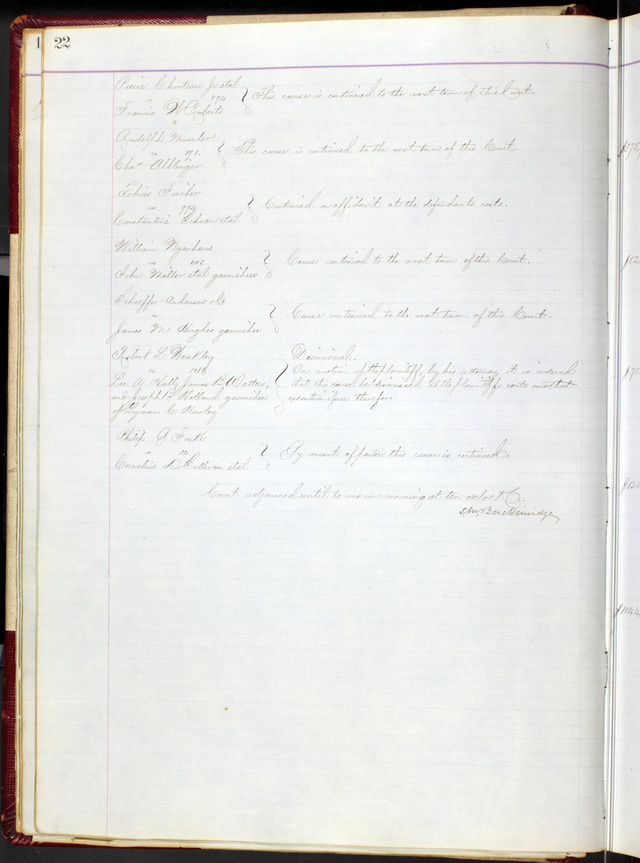 1 22
Pierre Chouteau Jr et al
" 894 This cause is continued to the next term of this Court.
Francis W Roberts
Rudolph
vs This cause is continued to the next term of this Court.
Chas Alblinger
Tobias Fischer
vs 974 Continued on affidavit at the defendants costs.
Constantine et al
William Nyenhaus
vs 1113 Cause continued to the next term of this Court.
John Miller et al garnishees
Schaeffer Anheuser & Co
" Cause continued to the next term of this Court.
James M Hughes garnishee
Robert L Weakley Dismissal.
" On motion of the plaintiff, by his attorney it is ordered
Lee A Hall, James B Watters, that this cause be dismissed at the plaintiffs costs and that
and Joseph B Holland garnishees execution issue therefor.
of Lyman C Hawley
Philip G
vs By consent of parties this cause is continued.
Cornelius D Sullivan et al
Court adjourned until to morrow morning at ten oclock.
S. M. Breckinridge